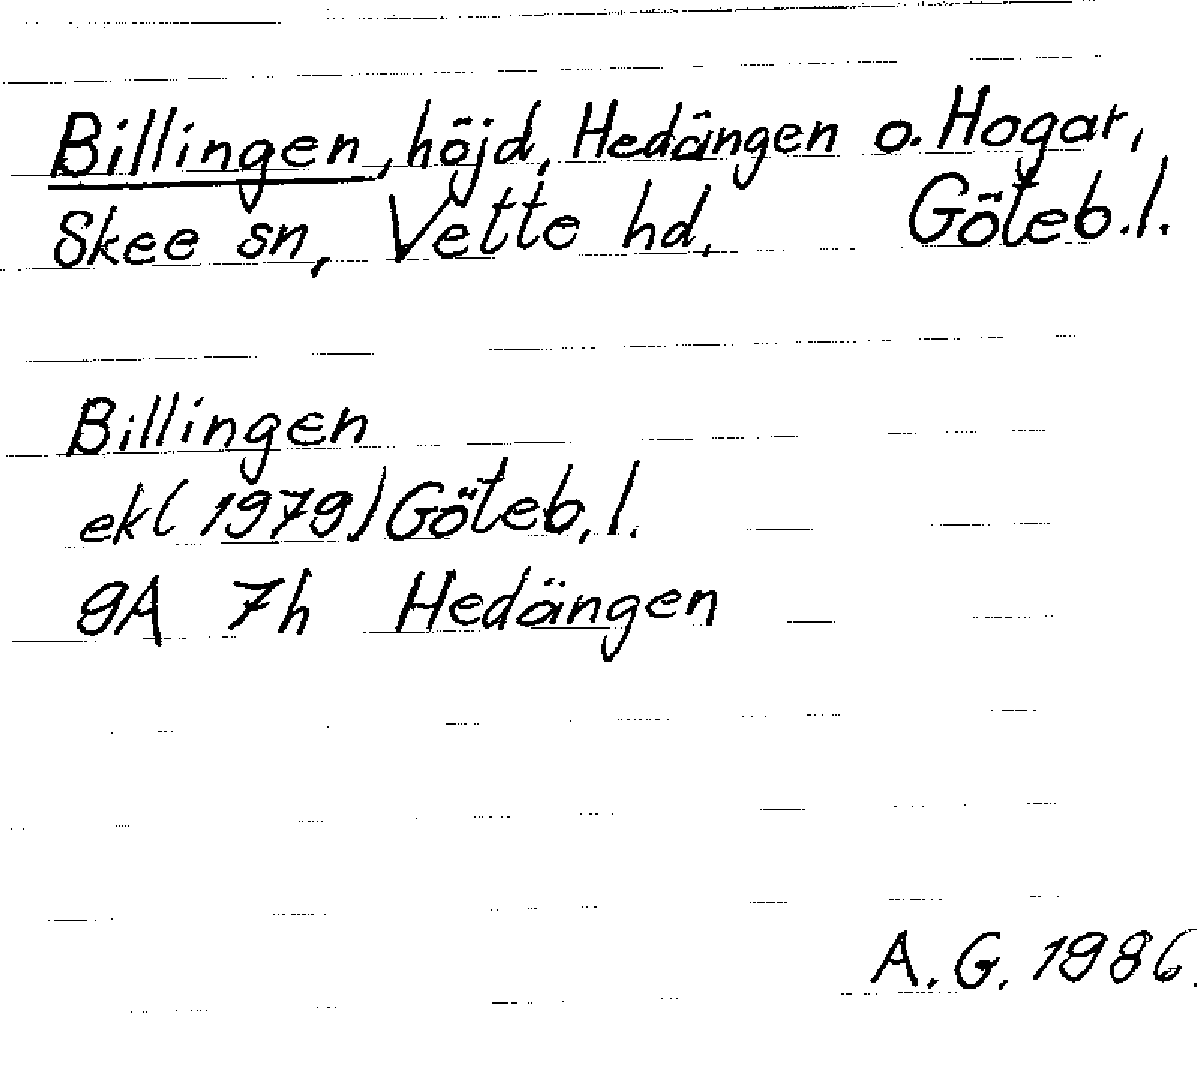 Billingen, höjd, Hedängen o. Hogar,
Skee sn, Vette hd, Göteb.l.
Billingen
ek (1979) Göteb.l.
9A 7h Hedängen
A.G. 1986.